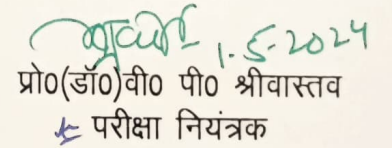 1-5-2024
प्रो0(डॉ0)वी0 पी0 श्रीवास्तव
परीक्षा नियंत्रक